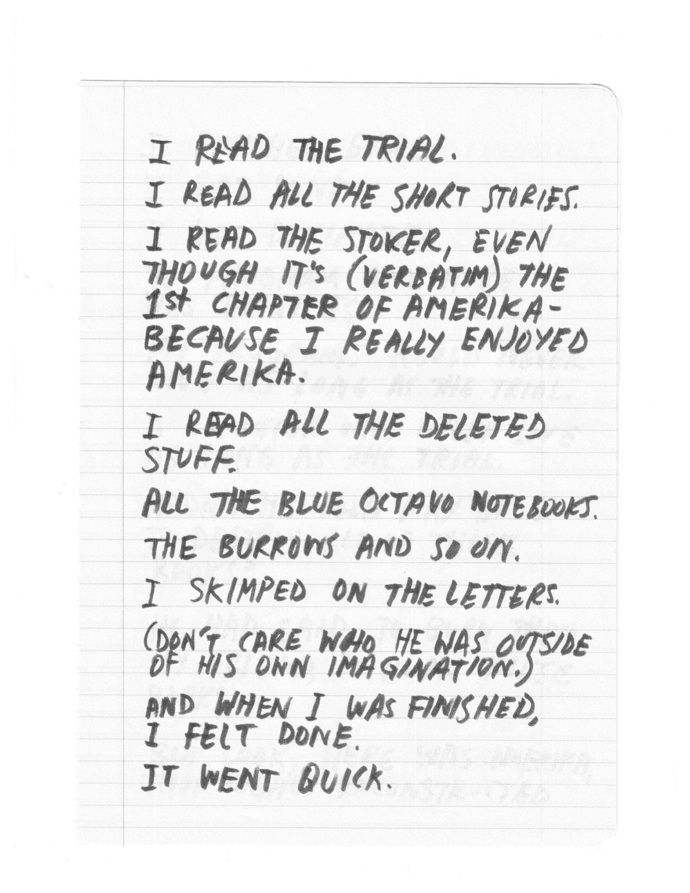 I READ THE TRIAL.
I READ ALL THE SHORT STORIES.
I READ THE STOKER, EVEN
THOUGH IT'S (VERBATIM) THE
1st CHAPTER OF AMERIKA-
BECAUSE I REALLY ENJOYED
AMERIKA.
I READ ALL THE DELETED
STUFF.
ALL THE BLUE OCTAVO NOTEBOOKS.
THE BURROWS AND SO ON.
I SKIMPED ON THE LETTERS.
(DON'T CARE WHO HE WAS OUTSIDE
OF HIS OWN IMAGINATION.)
AND WHEN I WAS FINISHED,
I FELT DONE.
IT WENT QUICK.